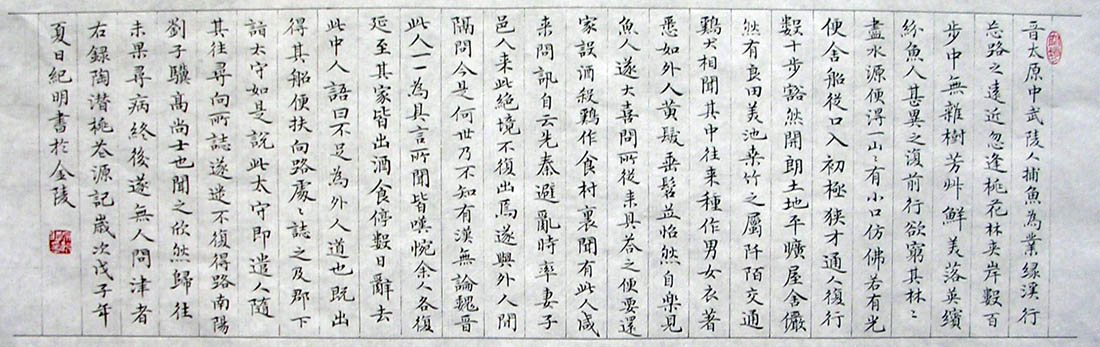 晉太原中武陵人捕魚為業緣溪行
忘路之遠近忽逢桃花林夾岸數百
步中無雜樹芳艸鮮美落英繽
紛魚人甚異之復前行欲窮其林〻
盡水源便得一山〻有小口仿佛若有光
便舍船從口入初極狹才通人復行
數十步豁然開朗土地平曠屋舍儼
然有良田美池桑竹之屬阡陌交通
鷄犬相聞其中往来種作男女衣著
悉如外人黄髮垂髫並怡然自樂見
魚人遂大喜問所從来具荅之便要還
家設酒殺鷄作食村裏聞有此人咸
来問訊自云先秦避亂時率妻子
邑人来此絕境不復出焉遂與外人閒
隔問今是何世乃不知有漢無論魏晉
此人一一為具言所聞皆嘆惋余人各復
延至其家皆出酒食停數日辭去
此中人語曰不足為外人道也既出
得其船便扶向路處〻誌之及郡下
詣太守如是說此太守即遣人隨
其往尋向所誌遂迷不復得路南陽
劉子驥高尚士也聞之欣然歸往
未果尋病終後遂無人問津者
右錄陶潛桃花源記歲次戊子年
夏日紀明書於金陵